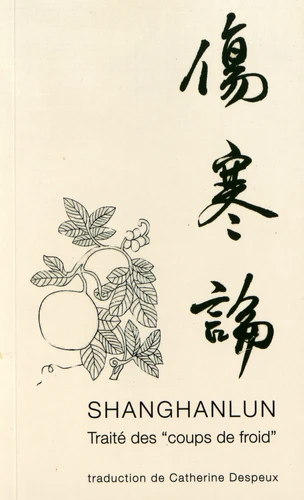 傷寒論
SHANGHANLUN
Traité des "coups de froid"
traduction de Catherine Despeux